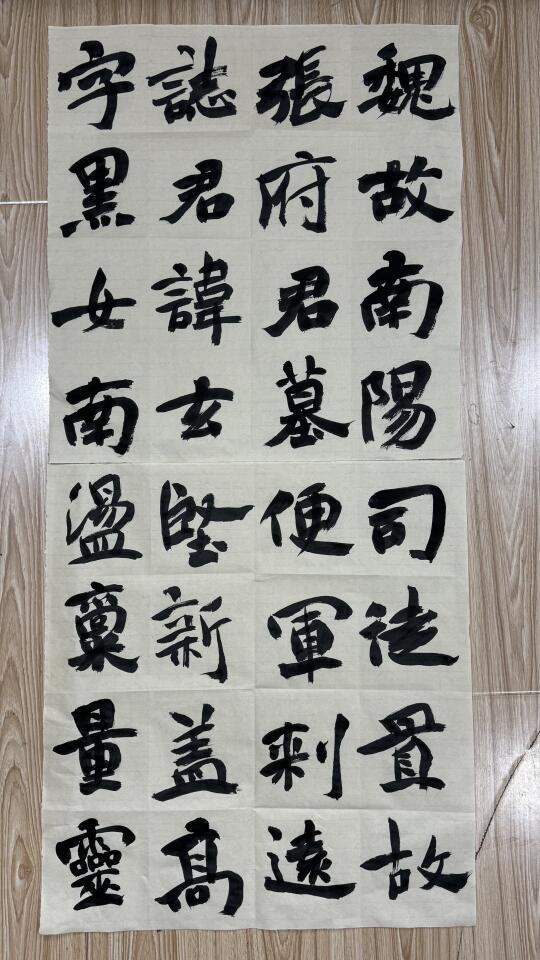 魏故南陽
張府君墓
誌君諱玄
字黑女南
司徒置故
便軍刺遠
堅新盖高
盪稟量靈